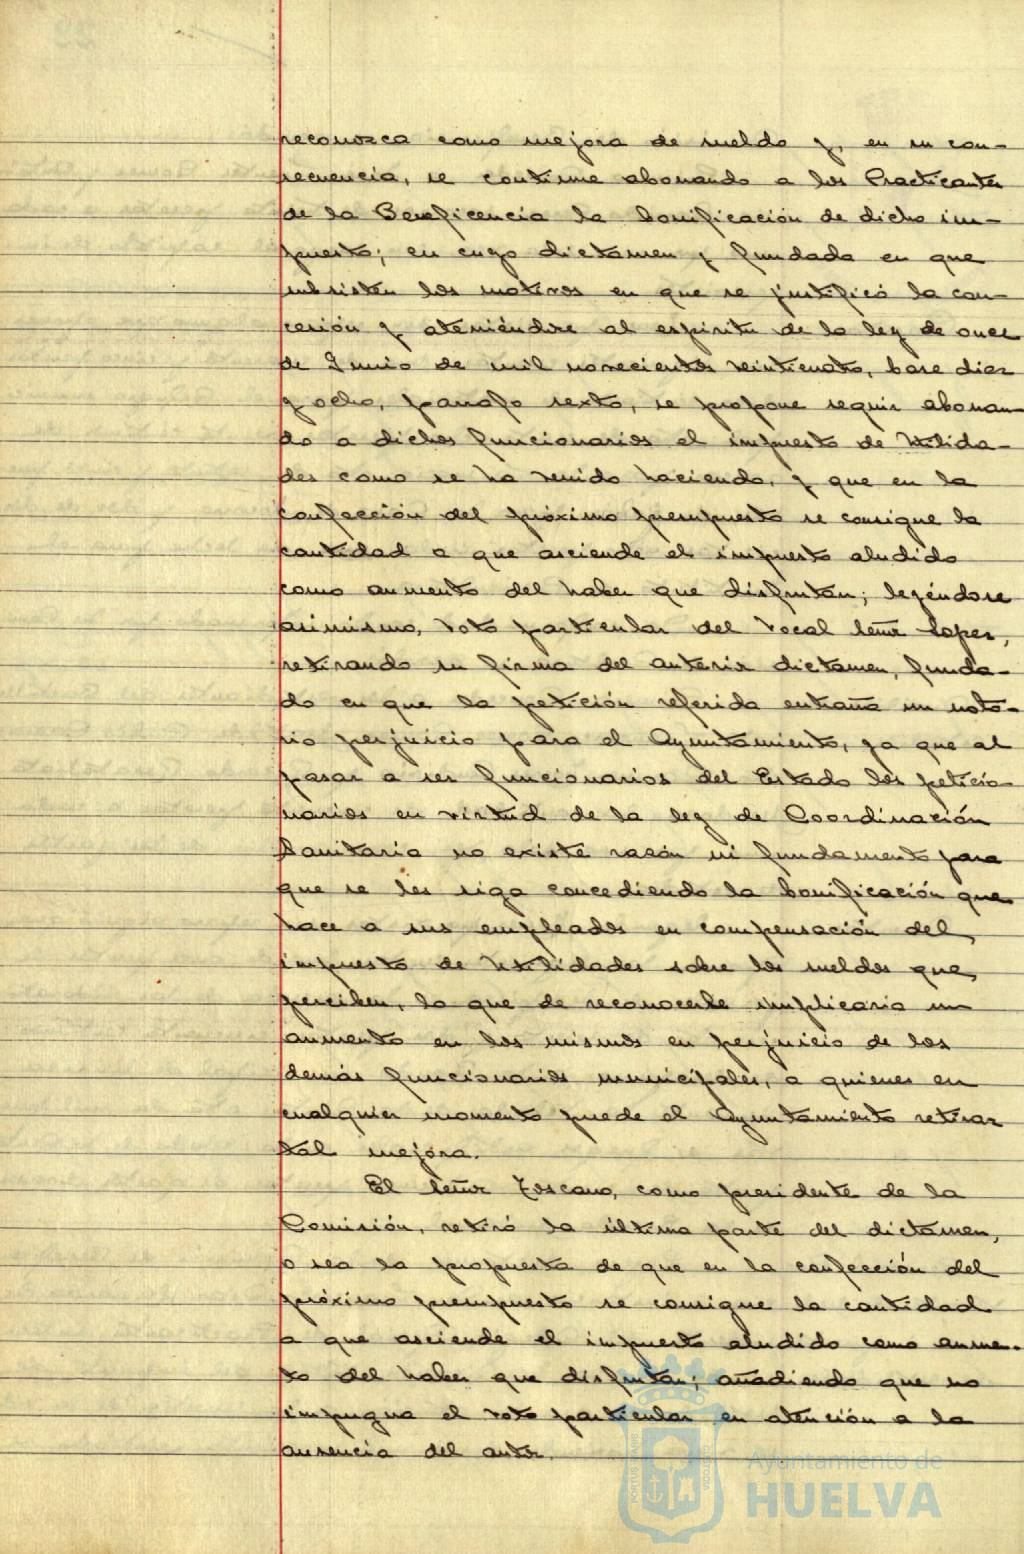 reconozca como mejora de sueldo y, en su con-
secuencia, se continue abonando a los Practicantes
de la Beneficencia la bonificación de dicho im-
puesto; en cuyo dictamen y fundada en que
subsisten los motivos en que se justificó la con-
cesión y ateniéndose al espiritu de la ley de once
de Junio de mil novecientos veinticuatro, base diez
y ocho, parrafo sexto, se propone seguir abonan-
do a dichos funcionarios el impuesto de Utilida-
des como se ha venido haciendo, y que en la
confección del próximo presupuesto se consigne la
cantidad a que asciende el impuesto aludido
como aumento del haber que disfrutan; leyéndose
asimismo, voto particular del vocal señor Lopez,
retirando su firma del anterior dictamen, funda-
do en que la petición referida entraña un noto-
rio perjuicio para el Ayuntamiento, ya que al
pasar a ser funcionarios del Estado los peticio-
narios en virtud de la ley de Coordinación
Sanitaria no existe razón ni fundamento para
que se les siga concediendo la bonificación que
hace a sus empleados en compensación del
impuesto de Utilidades sobre los sueldos que
perciben, lo que de reconocerle implicaria un
aumento en los mismos en perjuicio de los
demás funcionarios municipales, a quienes en
cualquier momento puede el Ayuntamiento retirar
tal mejora.
El señor Toscano, como presidente de la
Comisión, retiró la última parte del dictamen,
o sea la propuesta de que en la confección del
próximo presupuesto se consigne la cantidad
a que asciende el impuesto aludido como aumen-
to del haber que disfrutan; añadiendo que no
impugna el voto particular en atención a la
ausencia del autor.
Ayuntamiento de
HUELVA